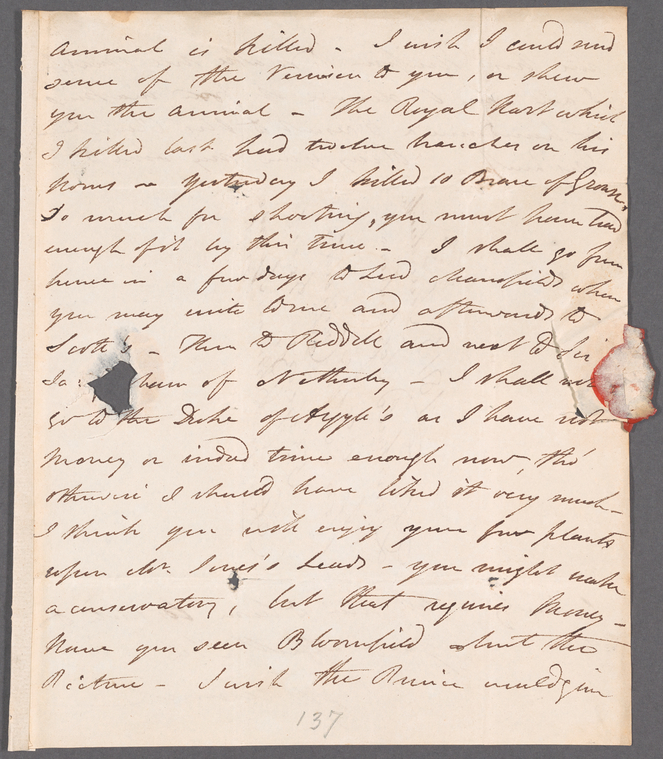 animal is killed - I wish I could send
some of the Venison to you, or shew
you the animal - The Royal Hart which
I killed last had twelve branches on his
horns - yesterday I killed 10 Brace of Grouse,
So much for shooting, you must have had
enough of it by this time - I shall go from
hence in a few days to Lord Mansfields when
you may write to me and afterwards to
Scott's - Then to Riddell and next to Sir
Ja: ham of Netherby - I shall not
go to the Duke of Argyle's as I have not
money or indeed time enough now, tho'
otherwise I should have liked it very much -
I think you will enjoy your few plants
upon Mr. Jones's Leads - you might make
a conservatory, but that requires Money -
have you seen Bloomfield about the
Picture - I wish the Prince would give
137